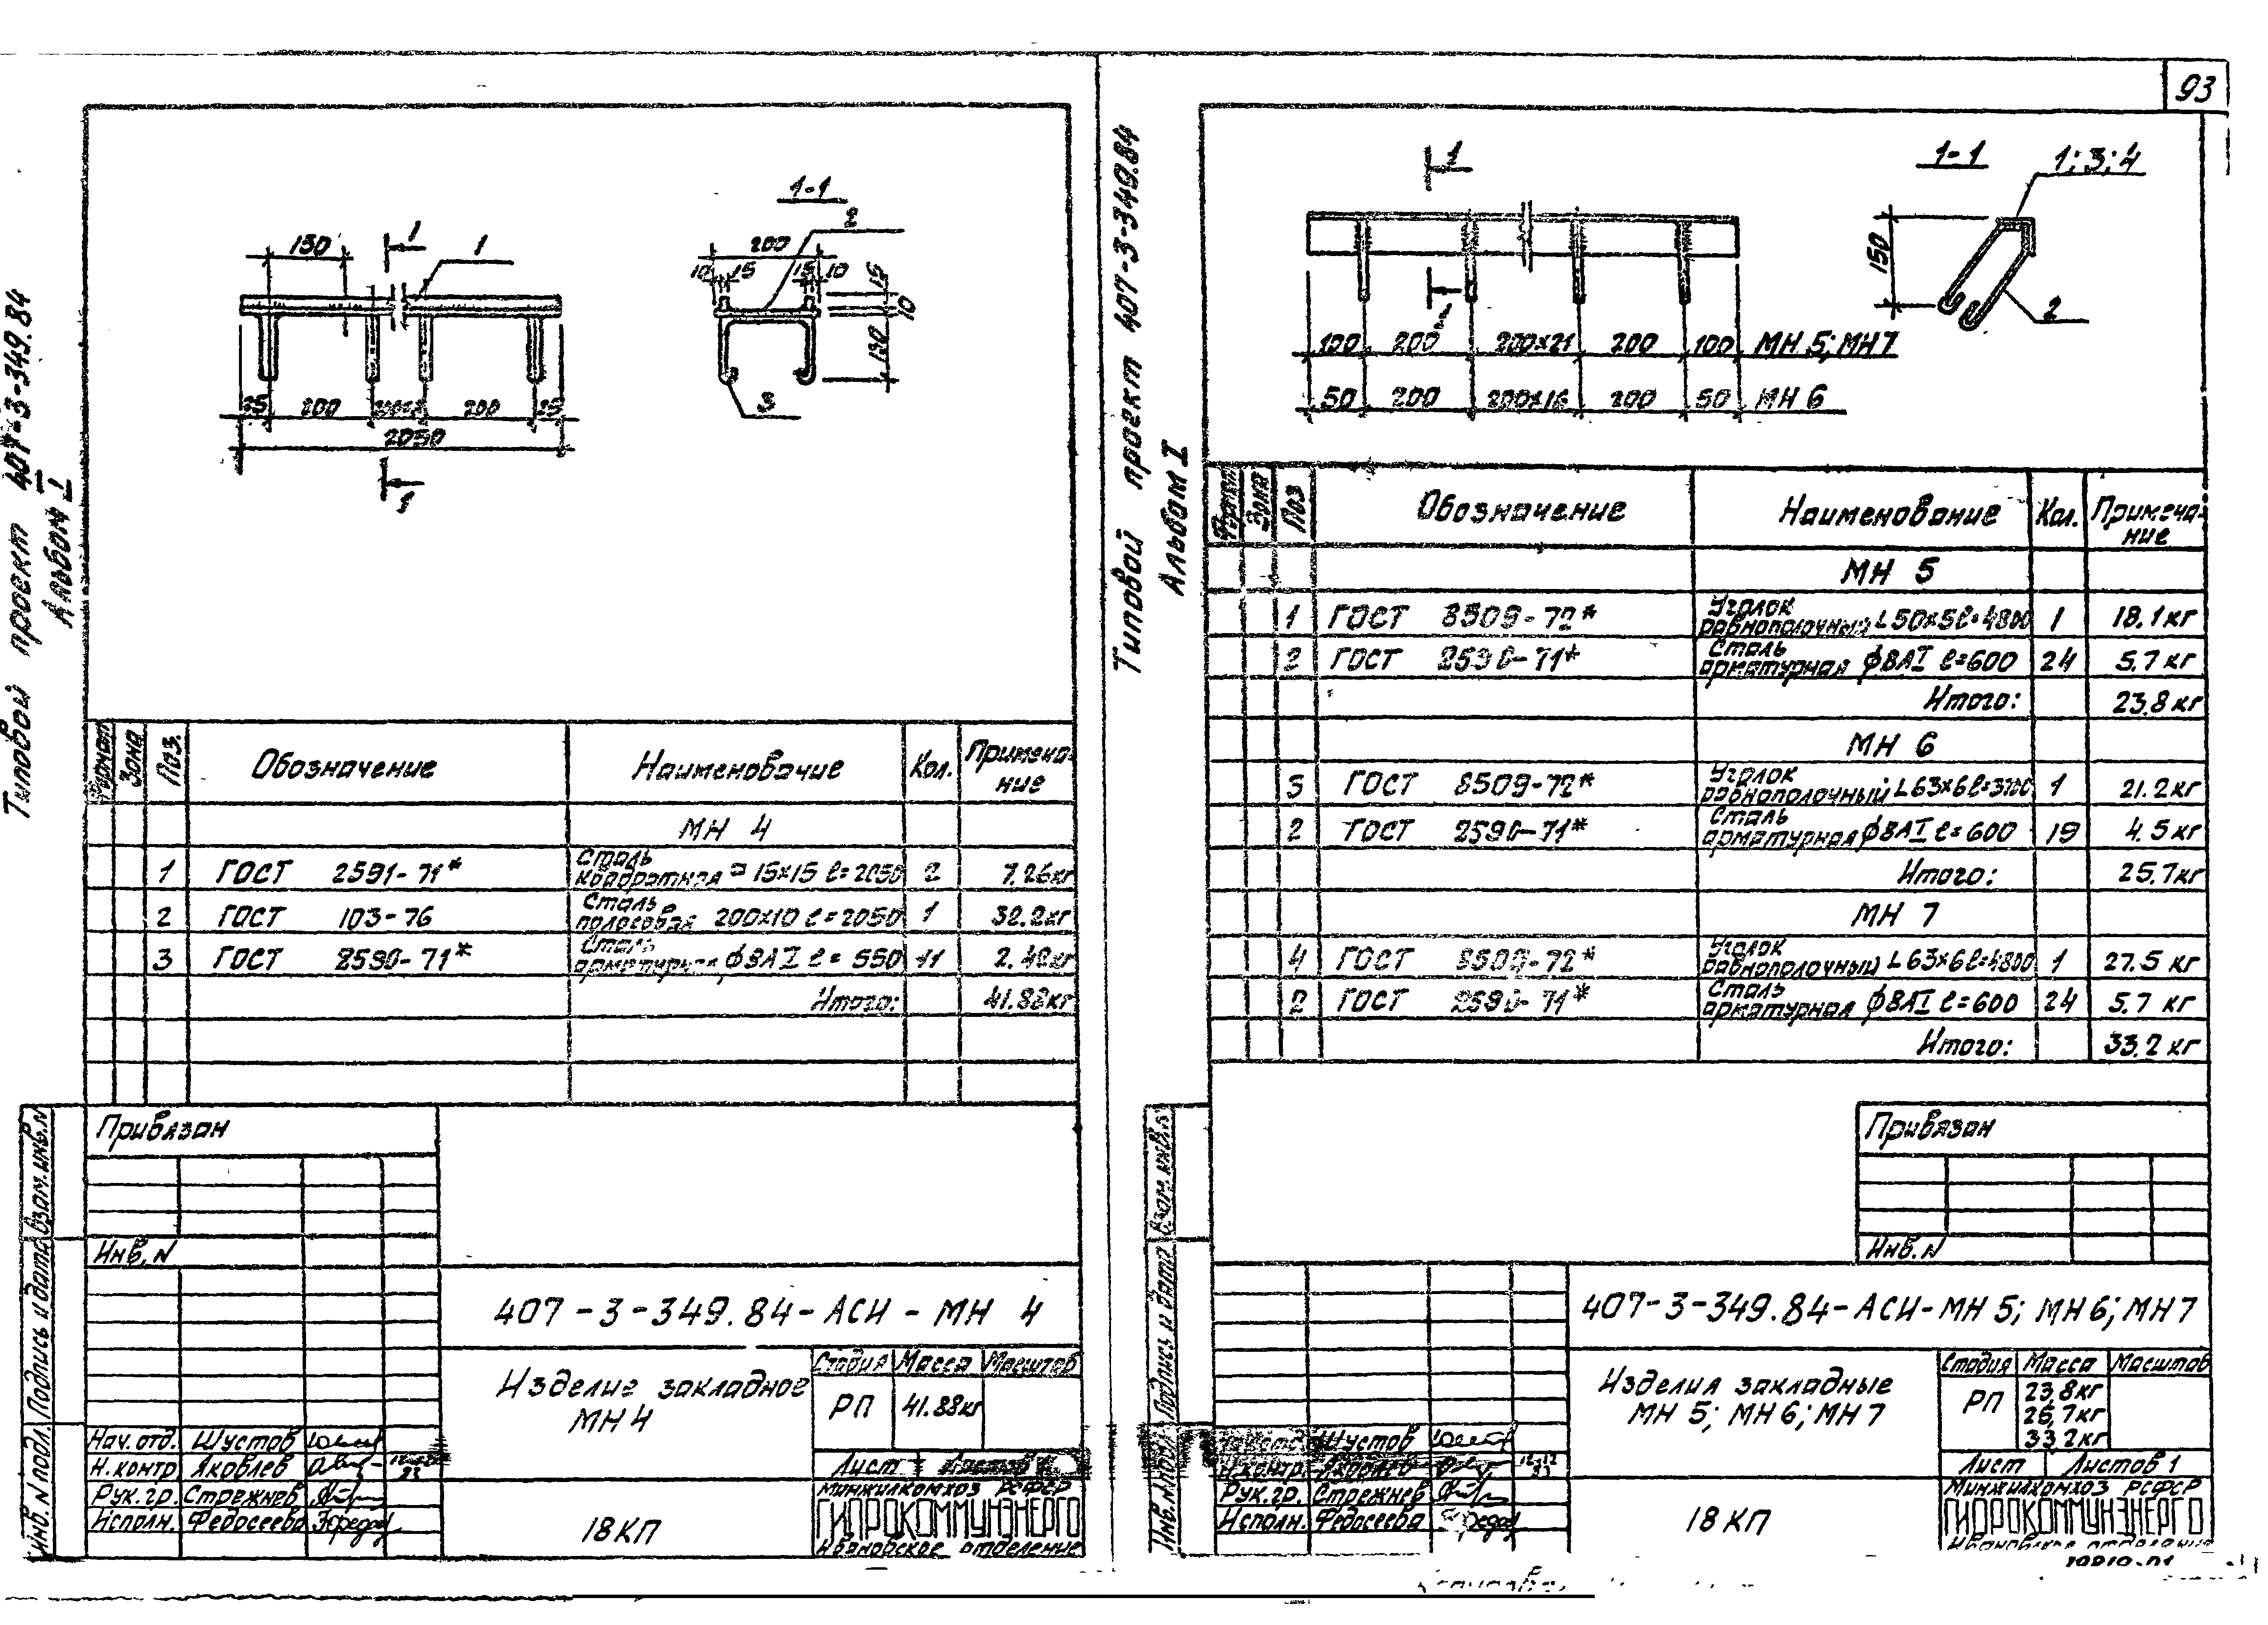 93
Типовой проект 407-3-349.84
Альбом I
130
1
1
25
200
200
25
2050
1
1-1
2
200
10
15
15
10
15
10
130
3
Формат
Зона
Поз.
Обозначение
Наименование
Кол.
Примеча-
ние
МН 4
1 ГОСТ 2591-71* Сталь
квадратная □ 15х15 ℓ=2050 2 7.26кг
2 ГОСТ 103-76 Сталь
полосовая 200х10 ℓ=2050 1 32.2кг
3 ГОСТ 2590-71* Сталь
арматурная ф8АI ℓ= 550 11 2.42кг
Итого: 41.88кг
Привязан
Инв. N
Взам.инв.N
Подпись и дата
Инв. N подл.
407-3-349.84-АСИ-МН 4
Изделие закладное
МН 4
Стадия Масса Масштаб
РП 41.88кг
Лист Листов
Нач. отд. Шустов
Н.контр Яковлев
Рук. гр. Стрежнев
Исполн. Федосеева
18КП
Минжилкомхоз РСФСР
ГИПРОКОММУНЭНЕРГО
Ивановское отделение
Типовой проект 407-3-349.84
Альбом I
1
1
100 200 200х21 200 100 МН 5; МН 7
50 200 200х16 200 50 МН 6
1-1
1; 3; 4
150
2
Формат
Зона
Поз
Обозначение
Наименование
Кол.
Примеча-
ние
МН 5
1 ГОСТ 8509-72* Уголок
равнополочный L50х5 ℓ=4800 1 18.1кг
2 ГОСТ 2590-71* Сталь
арматурная ф8АI ℓ=600 24 5.7 кг
Итого: 23.8кг
МН 6
3 ГОСТ 8509-72* Уголок
равнополочный L63х6 ℓ=3700 1 21.2кг
2 ГОСТ 2590-71* Сталь
арматурная ф8АI ℓ=600 19 4.5кг
Итого: 25.7кг
МН 7
4 ГОСТ 8509-72* Уголок
равнополочный L63х6 ℓ=4800 1 27.5 кг
2 ГОСТ 2590-71* Сталь
арматурная ф8АI ℓ=600 24 5.7 кг
Итого: 33.2 кг
Привязан
Инв. N
Взам.инв.N
Подпись и дата
Инв. N подл.
407-3-349.84-АСИ-МН 5; МН 6; МН 7
Изделия закладные
МН 5; МН 6; МН 7
Стадия Масса Масштаб
РП 23,8кг
25,7кг
33.2кг
Лист Листов 1
Шустов
Н.контр. Яковлев
Рук. гр. Стрежнев
Исполн. Федосеева
18 КП
Минжилкомхоз РСФСР
ГИПРОКОММУНЭНЕРГО
Ивановское отделение